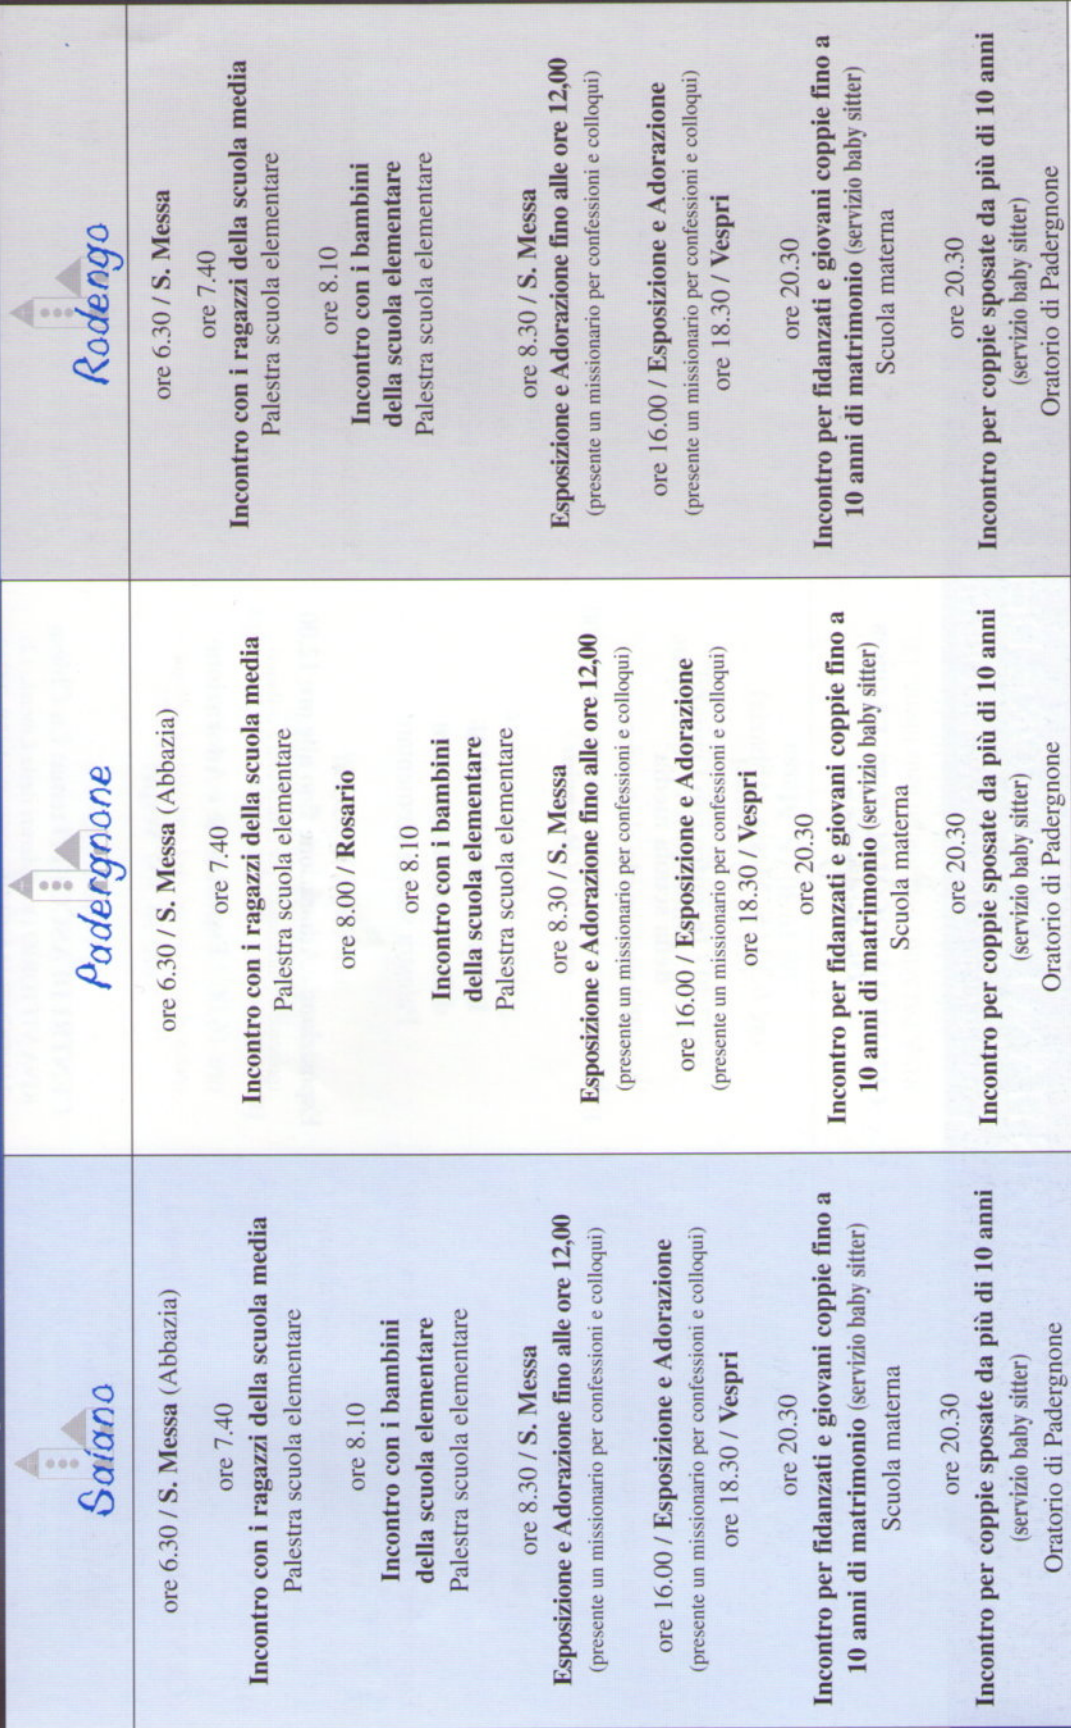 Saiano
ore 6.30 / S. Messa (Abbazia)
ore 7.40
Incontro con i ragazzi della scuola media
Palestra scuola elementare
ore 8.10
Incontro con i bambini
della scuola elementare
Palestra scuola elementare
ore 8.30 / S. Messa
Esposizione e Adorazione fino alle ore 12,00
(presente un missionario per confessioni e colloqui)
ore 16.00 / Esposizione e Adorazione
(presente un missionario per confessioni e colloqui)
ore 18.30 / Vespri
ore 20.30
Incontro per fidanzati e giovani coppie fino a
10 anni di matrimonio (servizio baby sitter)
Scuola materna
ore 20.30
Incontro per coppie sposate da più di 10 anni
(servizio baby sitter)
Oratorio di Padergnone
Padergnone
ore 6.30 / S. Messa (Abbazia)
ore 7.40
Incontro con i ragazzi della scuola media
Palestra scuola elementare
ore 8.00 / Rosario
ore 8.10
Incontro con i bambini
della scuola elementare
Palestra scuola elementare
ore 8.30 / S. Messa
Esposizione e Adorazione fino alle ore 12,00
(presente un missionario per confessioni e colloqui)
ore 16.00 / Esposizione e Adorazione
(presente un missionario per confessioni e colloqui)
ore 18.30 / Vespri
ore 20.30
Incontro per fidanzati e giovani coppie fino a
10 anni di matrimonio (servizio baby sitter)
Scuola materna
ore 20.30
Incontro per coppie sposate da più di 10 anni
(servizio baby sitter)
Oratorio di Padergnone
Rodengo
ore 6.30 / S. Messa
ore 7.40
Incontro con i ragazzi della scuola media
Palestra scuola elementare
ore 8.10
Incontro con i bambini
della scuola elementare
Palestra scuola elementare
ore 8.30 / S. Messa
Esposizione e Adorazione fino alle ore 12,00
(presente un missionario per confessioni e colloqui)
ore 16.00 / Esposizione e Adorazione
(presente un missionario per confessioni e colloqui)
ore 18.30 / Vespri
ore 20.30
Incontro per fidanzati e giovani coppie fino a
10 anni di matrimonio (servizio baby sitter)
Scuola materna
ore 20.30
Incontro per coppie sposate da più di 10 anni
(servizio baby sitter)
Oratorio di Padergnone